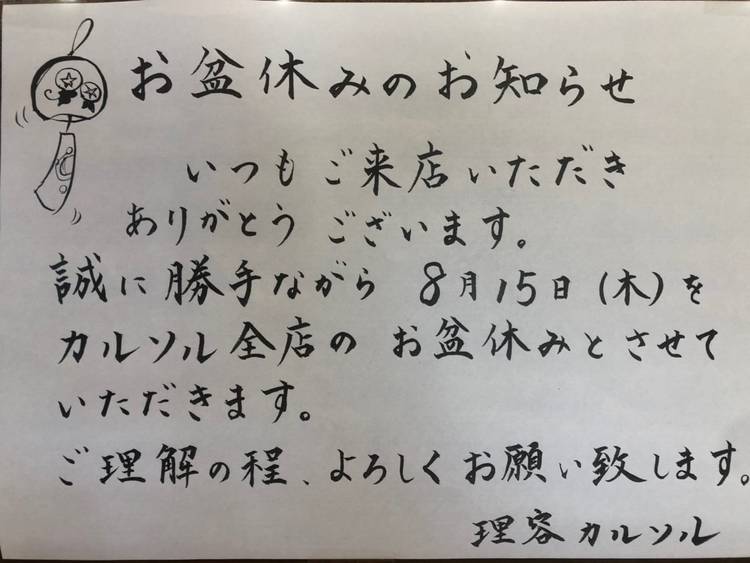 お盆休みのお知らせ
いつもご来店いただき
ありがとうございます。
誠に勝手ながら 8月15日(木)を
カルソル全店の お盆休みとさせて
いただきます。
ご理解の程、よろしくお願い致します。
理容カルソル